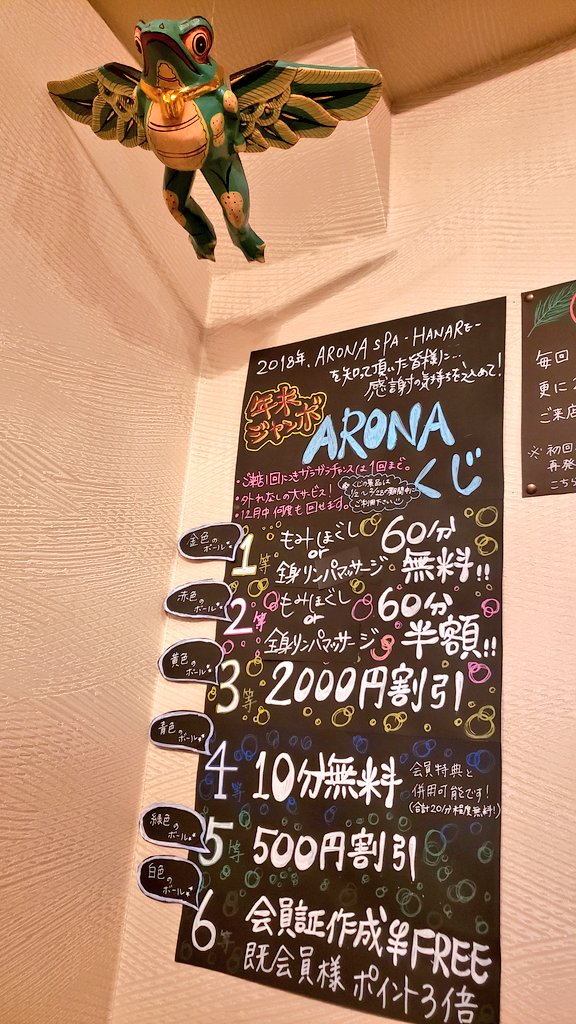 2018年、ARONA SPA -HANARE-
を知って頂いた皆様に…
感謝の気持ちを込めて!
年末
ジャンボ
ARONA
くじ
・ご来店1回につきガラガラチャンスは1回まで。
・外れなしの大サービス!
・12月中何度も回せます。
くじの景品は
1/2~2/28の期間中に
ご利用下さい
金色の
ボール
1等
もみほぐし
or
全身リンパマッサージ
60分
無料!!
赤色の
ボール
2等
もみほぐし
or
全身リンパマッサージ
60分
半額!!
黄色の
ボール
3等
2000円割引
青色の
ボール
4等
10分無料
会員特典と
併用可能です!
(合計20分程度無料!)
緑色の
ボール
5等
500円割引
白色の
ボール
6等
会員証作成半FREE
既会員様 ポイント3倍
毎回
更に
ご来店
※初回
再発
こちら